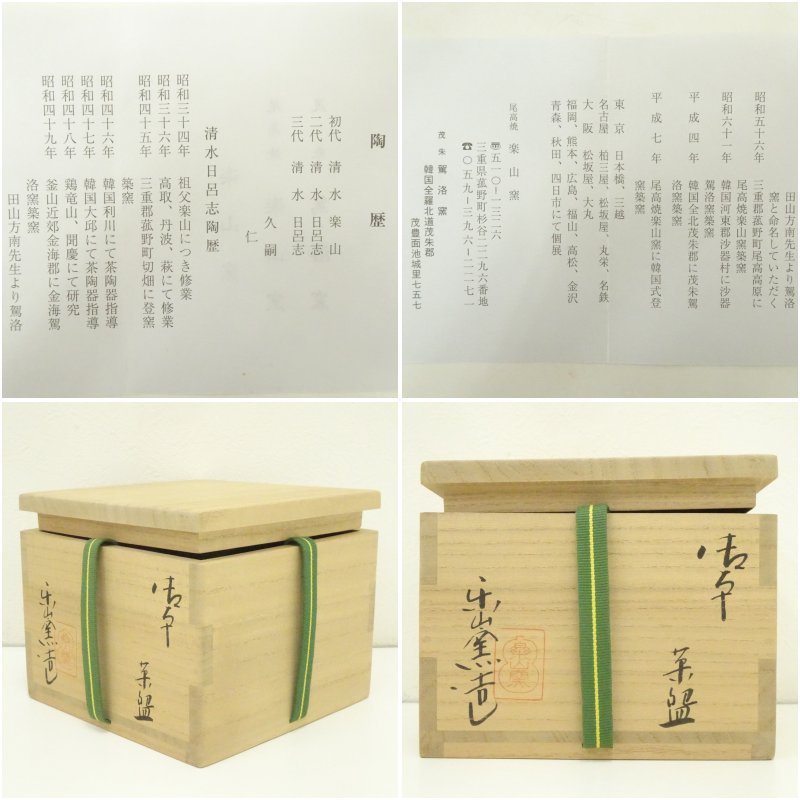 陶歴
初代 清水楽山
二代 清水日呂志
三代 清水日呂志
久嗣
仁
清水日呂志陶歴
昭和三十四年 祖父楽山につき修業
昭和三十六年 高取、丹波、萩にて修業
昭和四十五年 三重郡菰野町切畑に登窯
築窯
昭和四十六年 韓国利川にて茶陶器指導
昭和四十七年 韓国大邱にて茶陶器指導
昭和四十八年 鶏竜山、聞慶にて研究
昭和四十九年 釜山近郊金海郡に金海駕
洛窯築窯
田山方南先生より駕洛
田山方南先生より駕洛
窯と命名していただく
昭和五十六年 三重郡菰野町尾高高原に
尾高焼楽山窯築窯
昭和六十一年 韓国河東郡沙器村に沙器
駕洛窯築窯
平成四年 韓国全北茂朱郡に茂朱駕
洛窯築窯
平成七年 尾高焼楽山窯に韓国式登
窯築窯
東京 日本橋、三越
名古屋 柏三屋、松坂屋、丸栄、名鉄
大阪 松坂屋、大丸
福岡、熊本、広島、福山、高松、金沢
青森、秋田、四日市にて個展
尾高焼 楽山窯
〠五一〇―一二二六
三重県菰野町杉谷二二九六番地
☎〇五九―三九六―二二七一
茂朱 駕洛窯
韓国全羅北道茂朱郡
茂豊面池城里七五七
楽山窯造
楽山窯造